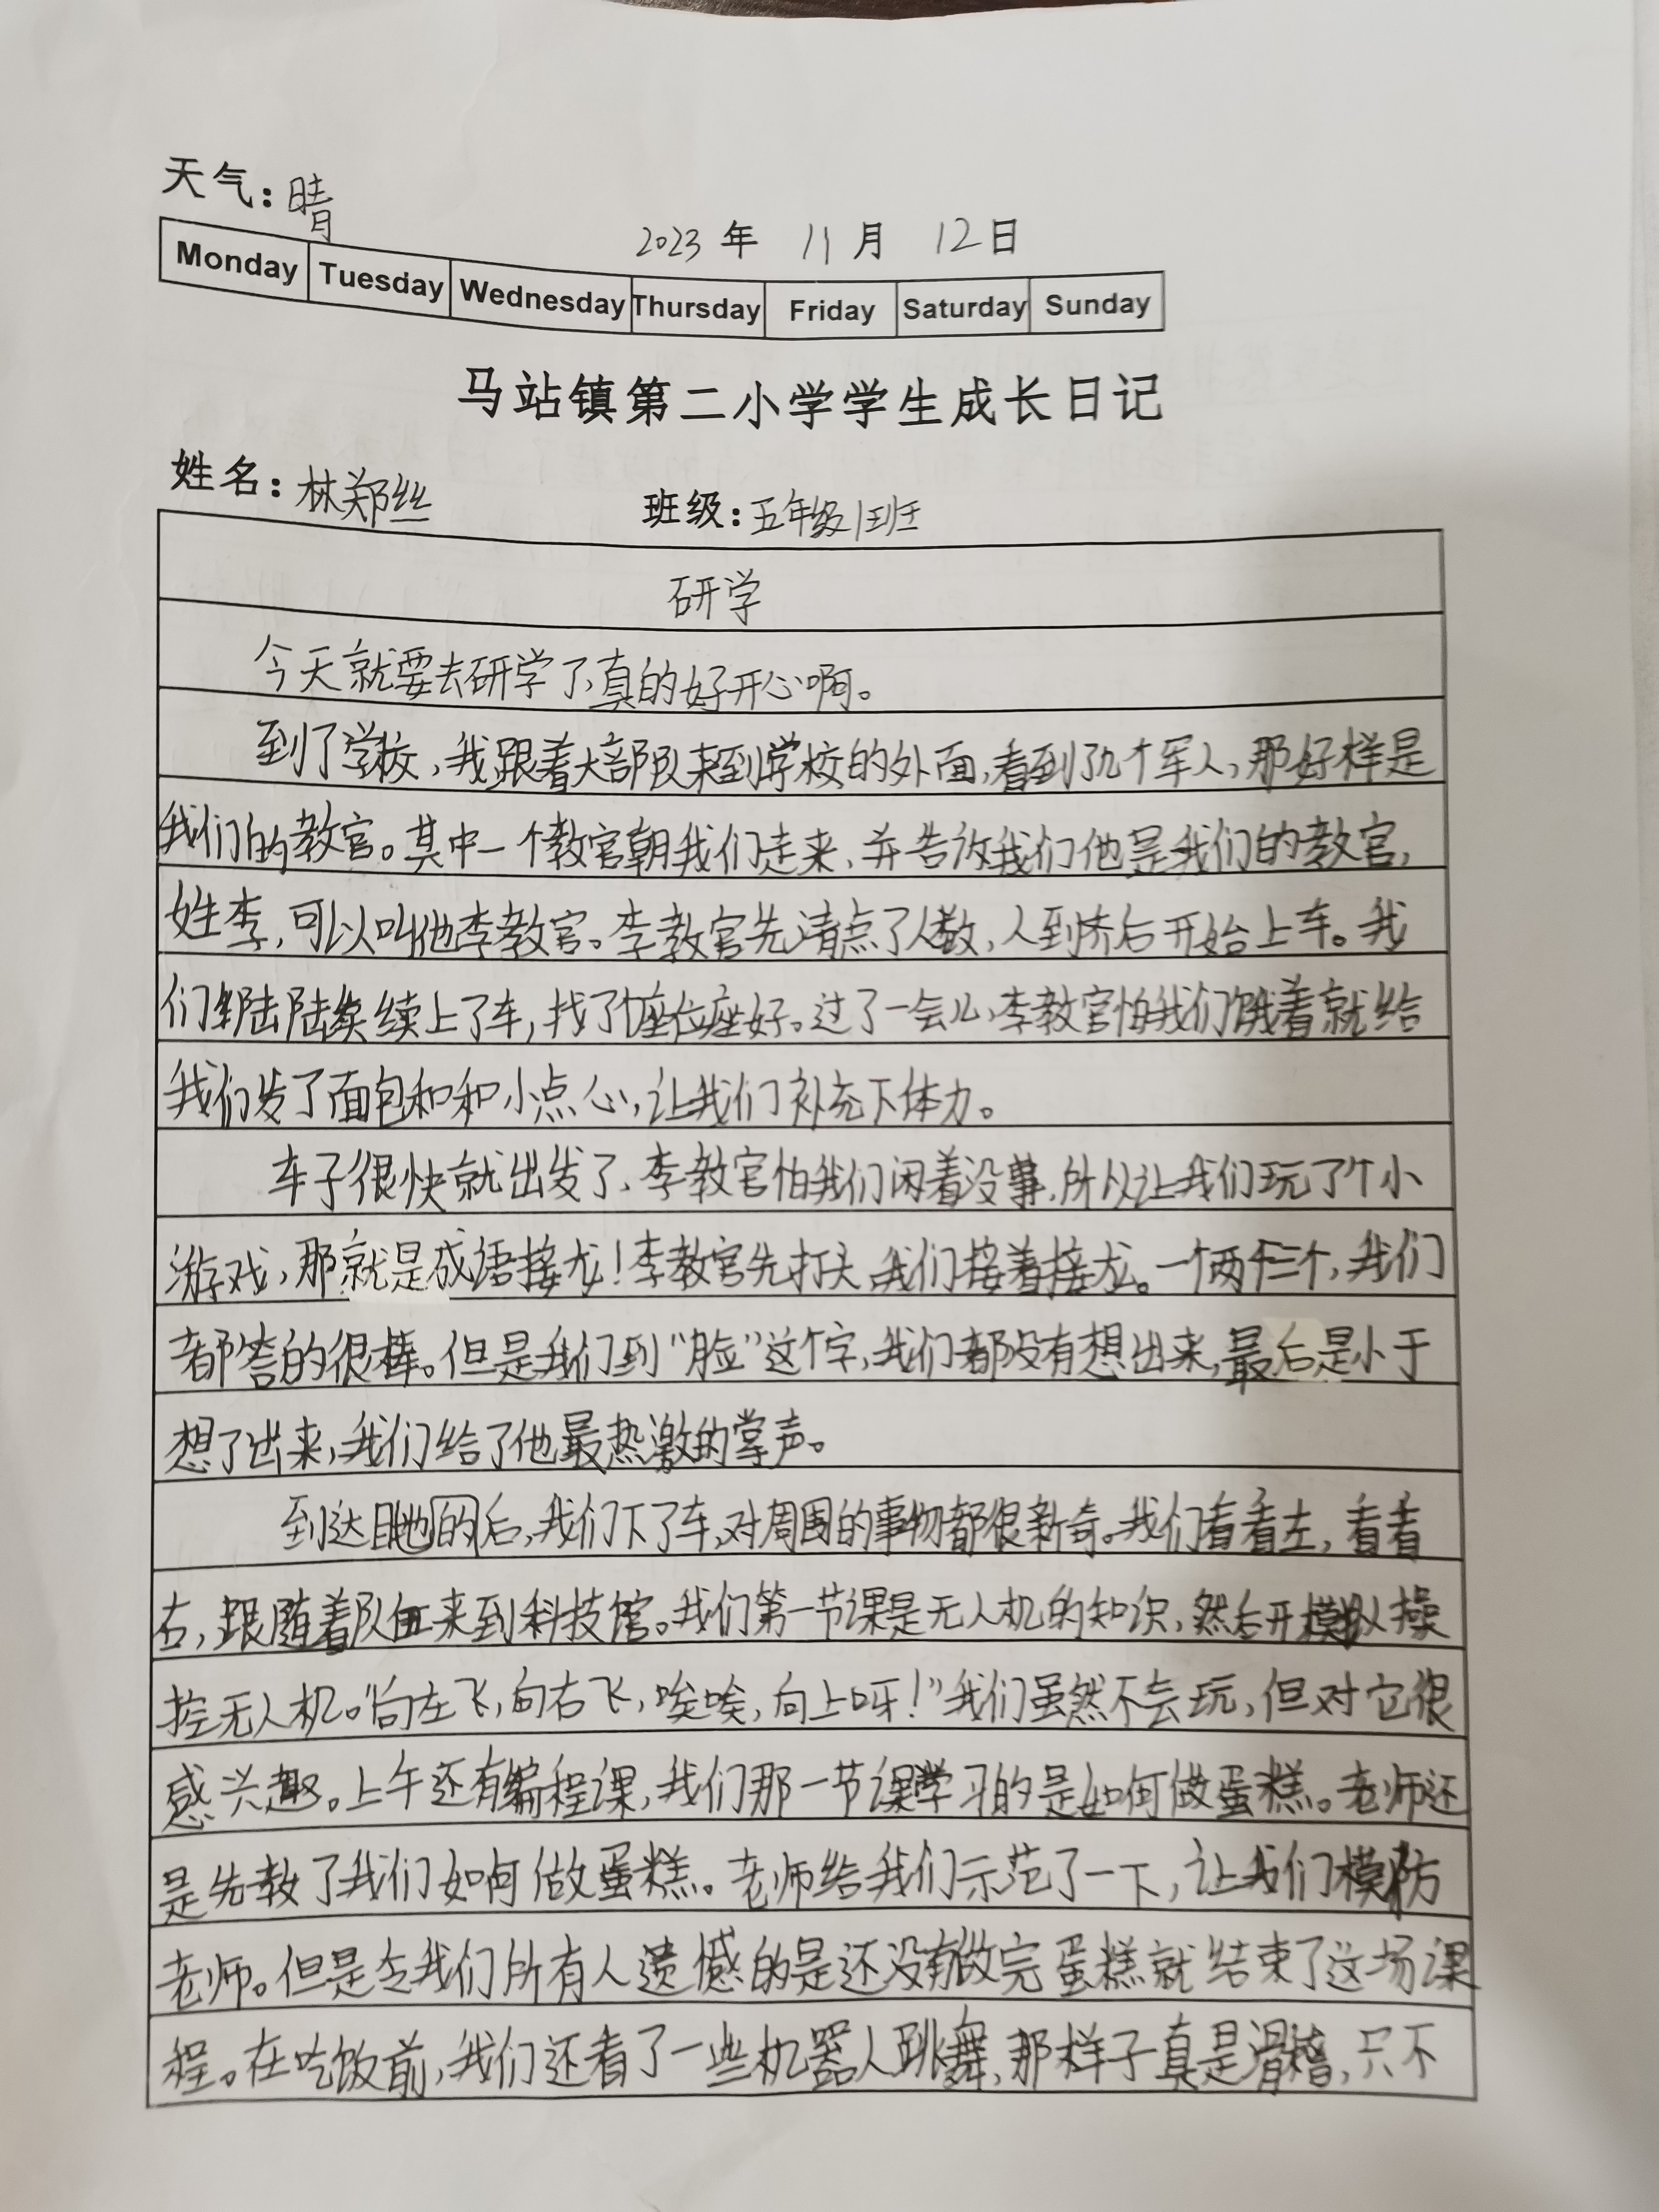 天气：晴
2023 年 11 月 12 日
Monday Tuesday Wednesday Thursday Friday Saturday Sunday
马站镇第二小学学生成长日记
姓名：林郑丝 班级：五年级1班
研学
今天就要去研学了，真的好开心啊。
到了学校，我跟着大部队来到学校的外面，看到了几个军人，那好样是
我们的教官。其中一个教官朝我们走来，并告诉我们他是我们的教官，
姓李，可以叫他李教官。李教官先清点了人数，人到齐后开始上车。我
们陆陆续续上了车，找了个座位座好。过了一会儿，李教官怕我们饿着就给
我们发了面包和和小点心，让我们补充下体力。
车子很快就出发了，李教官怕我们闲着没事，所以让我们玩了个小
游戏，那就是成语接龙！李教官先打头，我们接着接龙。一个两个三个，我们
都答的很棒。但是我们到“脸”这个字，我们都没有想出来，最后是小于
想了出来，我们给了他最热激的掌声。
到达目地的后，我们下了车，对周围的事物都很新奇。我们看看左，看看
右，跟随着队伍来到科技馆。我们第一节课是无人机的知识，然后开模拟操
控无人机。“向左飞，向右飞，唉唉，向上呀！”我们虽然不会玩，但对它很
感兴趣。上午还有编程课，我们那一节课学习的是如何做蛋糕。老师还
是先教了我们如何做蛋糕。老师给我们示范了一下，让我们模仿
老师。但是令我们所有人遗憾的是还没有做完蛋糕就结束了这场课
程。在吃饭前，我们还看了一些机器人跳舞，那样子真是滑稽，只不